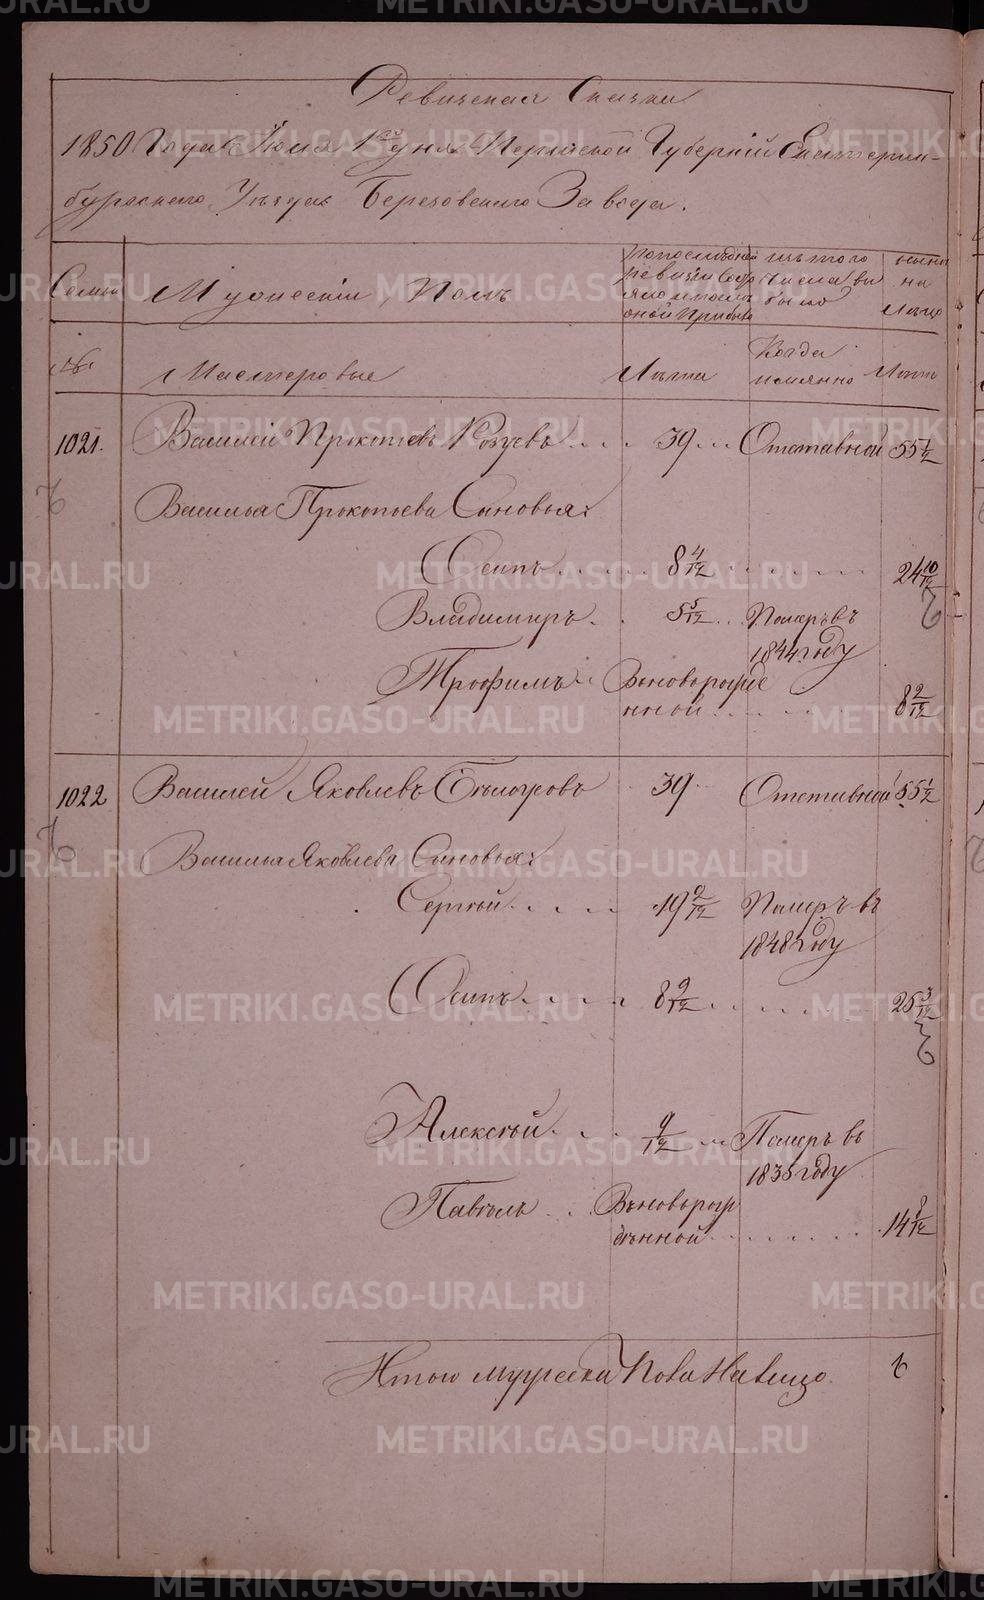 Ревизская Сказка
1850 Года Июня 1го дня Пермской Губерніи Екатерин-
бургскаго Уѣзда Березовскаго Завода.
Семьи
Мужескій Полъ
по последней
ревизіи состо
яло и после
оной прибыло
изъ того
числа вы
было
ныне
на
лицо
№
Мастеровые
Лѣта
Когда
имянно
Лѣта
1021.
Василей Прокопьевъ 39 Отставной 55 1/2
Василья Прокопьева Сыновья:
Осипъ 8 4/12 24 10/12
Владимиръ 5 5/12 Померъ въ
1844 году
Трофимъ Вновьрожде
нной 8 2/12
1022 Василей Яковлевъ 39 Отставной 55 1/2
Василья Яковлева Сыновья:
Сергей 19 9/12 Померъ въ
1848 году
Осипъ 8 9/12 25 3/12
Алексѣй 9/12 Померъ въ
1835 году
Павелъ Вновьрож
денной 14
Итого мужеска пола на лицо. 6
METRIKI.GASO-URAL.RU